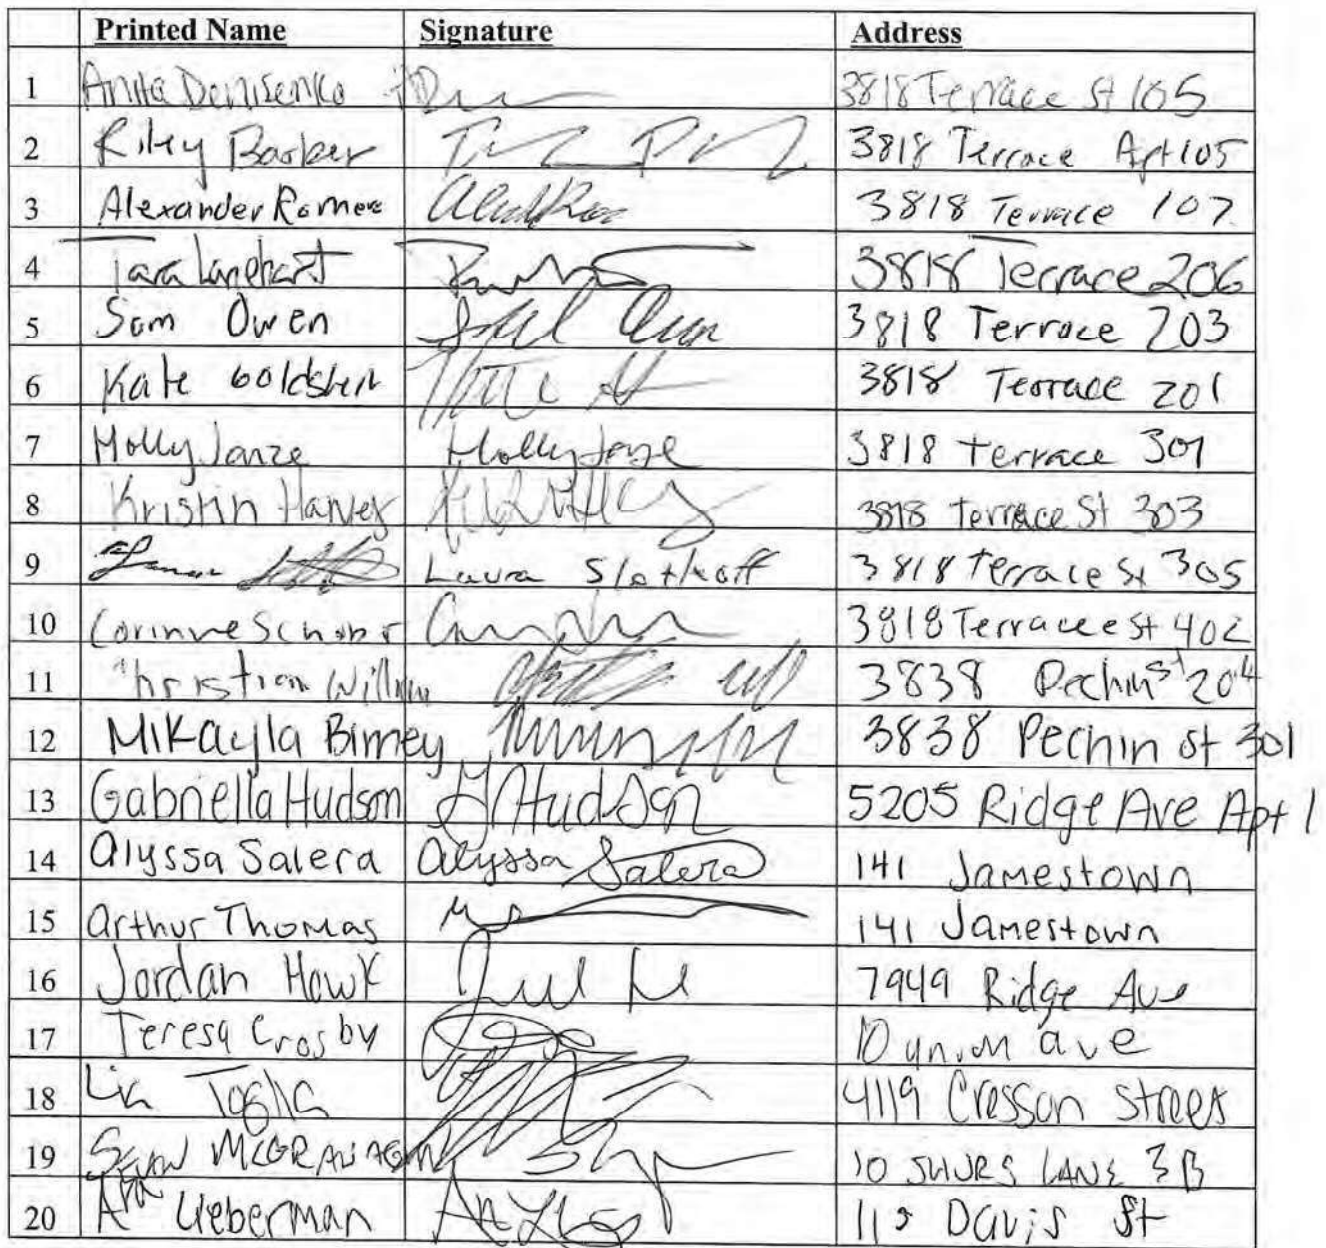 Printed Name Signature Address
1 Anita Denisenko 3818 Terrace St 105
2 Riley Barber 3818 Terrace Apt 105
3 Alexander Romero 3818 Terrace 107
4 Tara Lanehart 3818 Terrace 206
5 Sam Owen 3818 Terrace 203
6 Kate Goldstein 3818 Terrace 201
7 Molly Janze Molly Janze 3818 terrace 301
8 Kristin Harvey 3818 terrace St 303
9 Laura Slotkoff 3818 terrace St 305
10 Corinne Schobr 3818 Terrace St 402
11 Christian 3838 Pechin St 204
12 Mikayla Birney 3838 Pechin st 301
13 Gabriella Hudson G Hudson 5205 Ridge Ave Apt 1
14 alyssa Salera alyssa Salera 141 Jamestown
15 arthur Thomas 141 Jamestown
16 Jordan Hawk 7949 Ridge Ave
17 Teresa Crosby 10 union ave
18 Lia Toglia 4119 Cresson Street
19 McGRANAGAN 10 SHURS LANE 3B
20 Ara Lieberman 115 Davis St